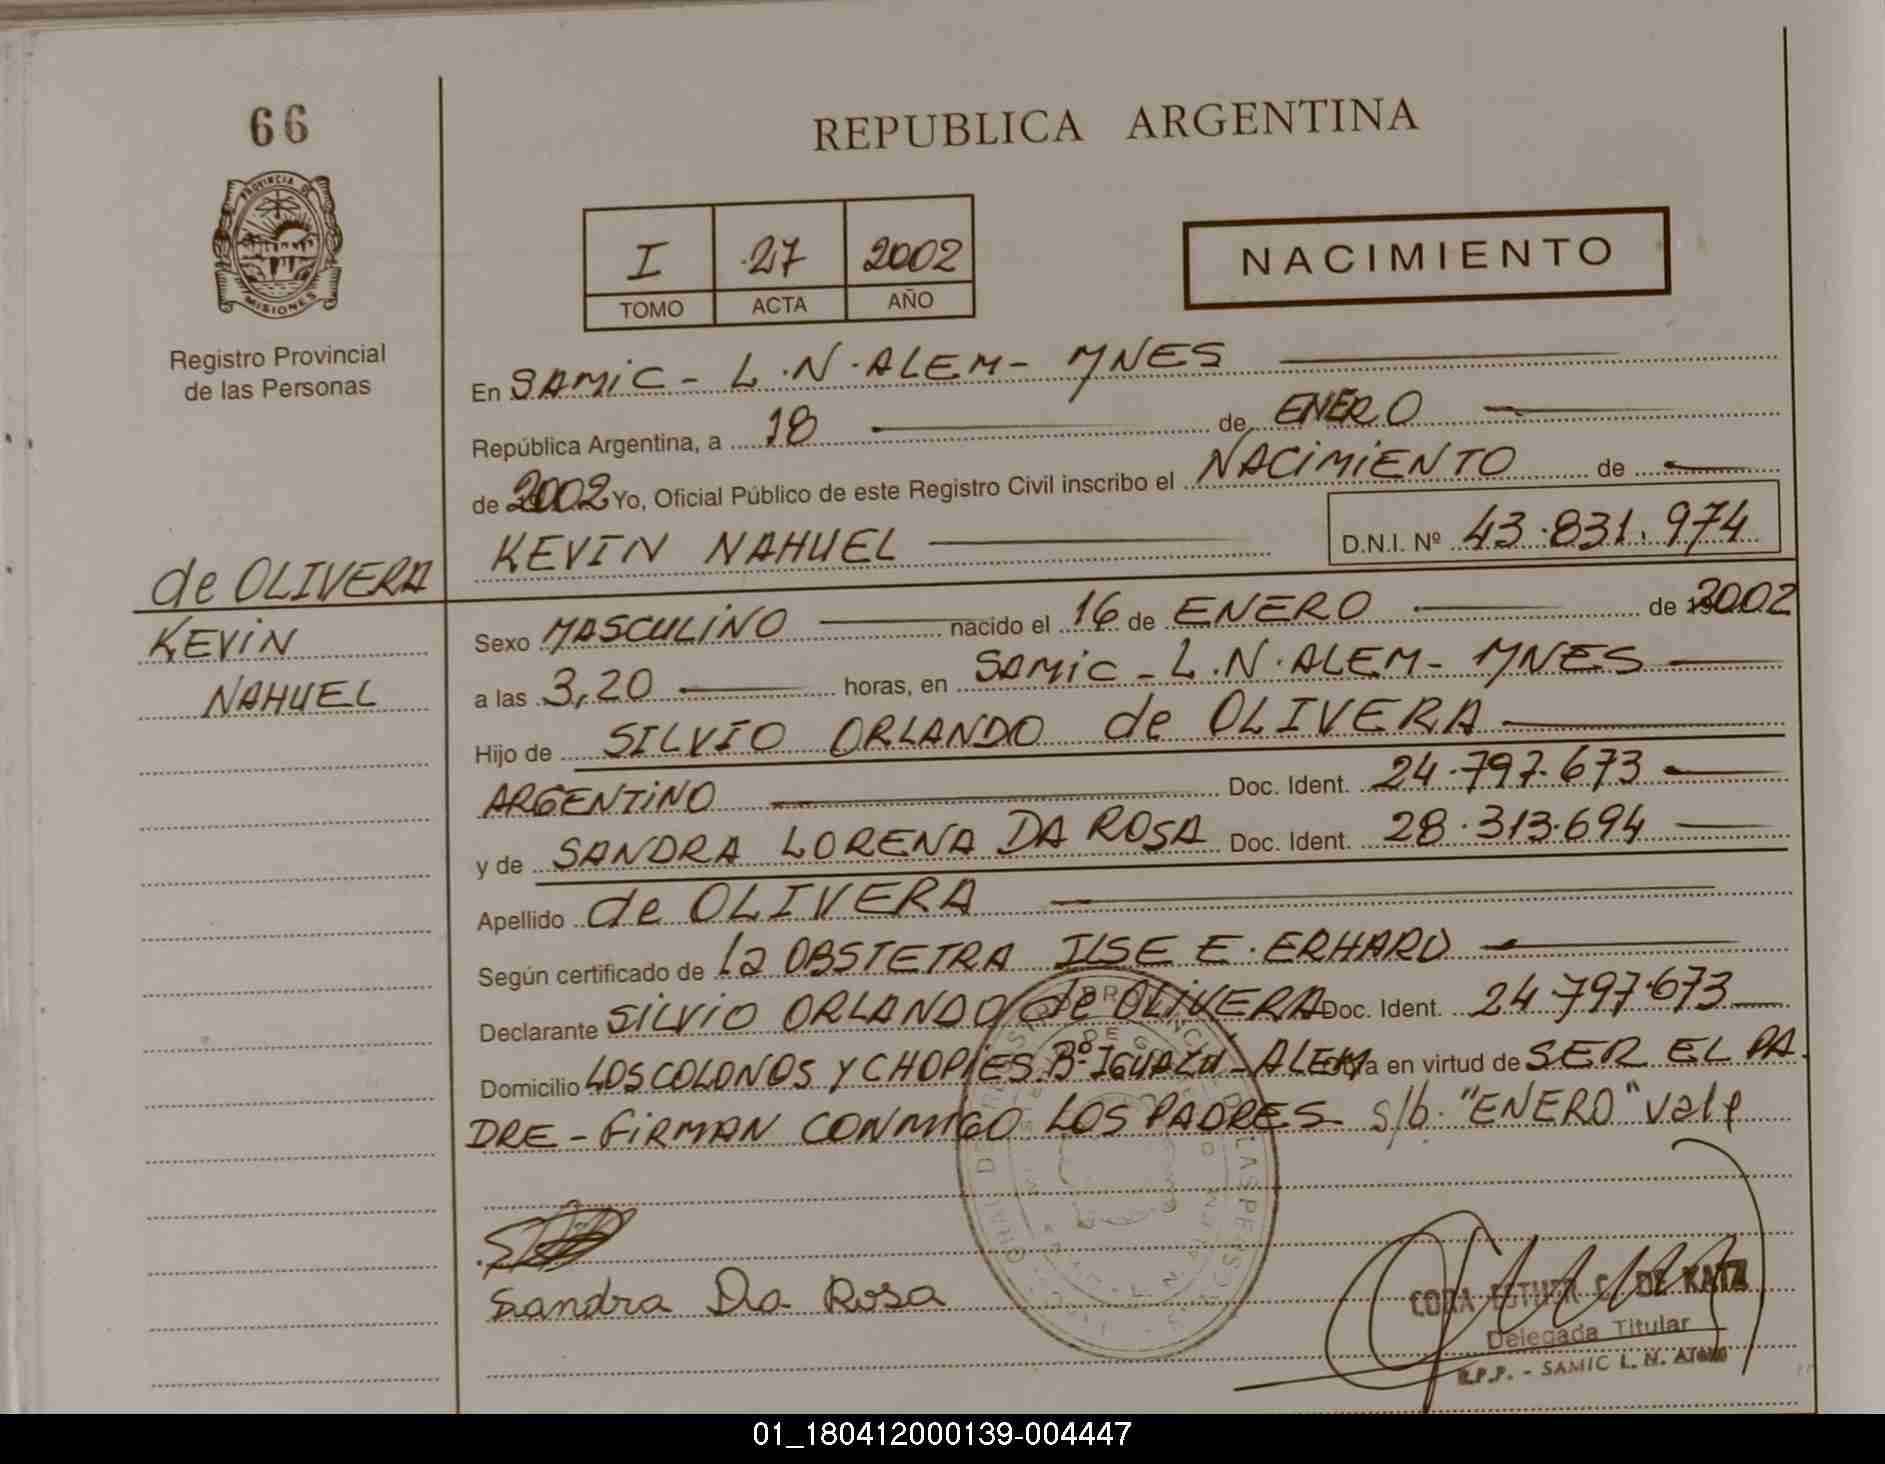 66
REPUBLICA ARGENTINA
PROVINCIA DE
MISIONES
Registro Provincial
de las Personas
I 27 2002
TOMO ACTA AÑO
NACIMIENTO
En SAMIC - L.N. ALEM - MNES
República Argentina, a 18 de ENERO
de 2002 Yo, Oficial Público de este Registro Civil inscribo el NACIMIENTO de
KEVIN NAHUEL D.N.I. Nº 43.831.974
de OLIVERA
KEVIN
NAHUEL
Sexo MASCULINO nacido el 16 de ENERO de 2002
a las 3,20 horas, en SAMIC - L.N. ALEM - MNES
Hijo de SILVIO ORLANDO de OLIVERA
ARGENTINO Doc. Ident. 24.797.673
y de SANDRA LORENA DA ROSA Doc. Ident. 28.313.694
Apellido de OLIVERA
Según certificado de la OBSTETRA ILSE E. ERHARD
Declarante SILVIO ORLANDO de OLIVERA Doc. Ident. 24.797.673
Domicilio LOS COLONOS Y CHOPIES Bº IGUAZU - ALEM en virtud de SER EL PA
DRE - FIRMAN CONMIGO LOS PADRES s/b. "ENERO" vale
Sandra Da Rosa
ESTHER C. DE KATZ
Delegada Titular
R.P.P. - SAMIC L. N. ALEM
01_180412000139-004447